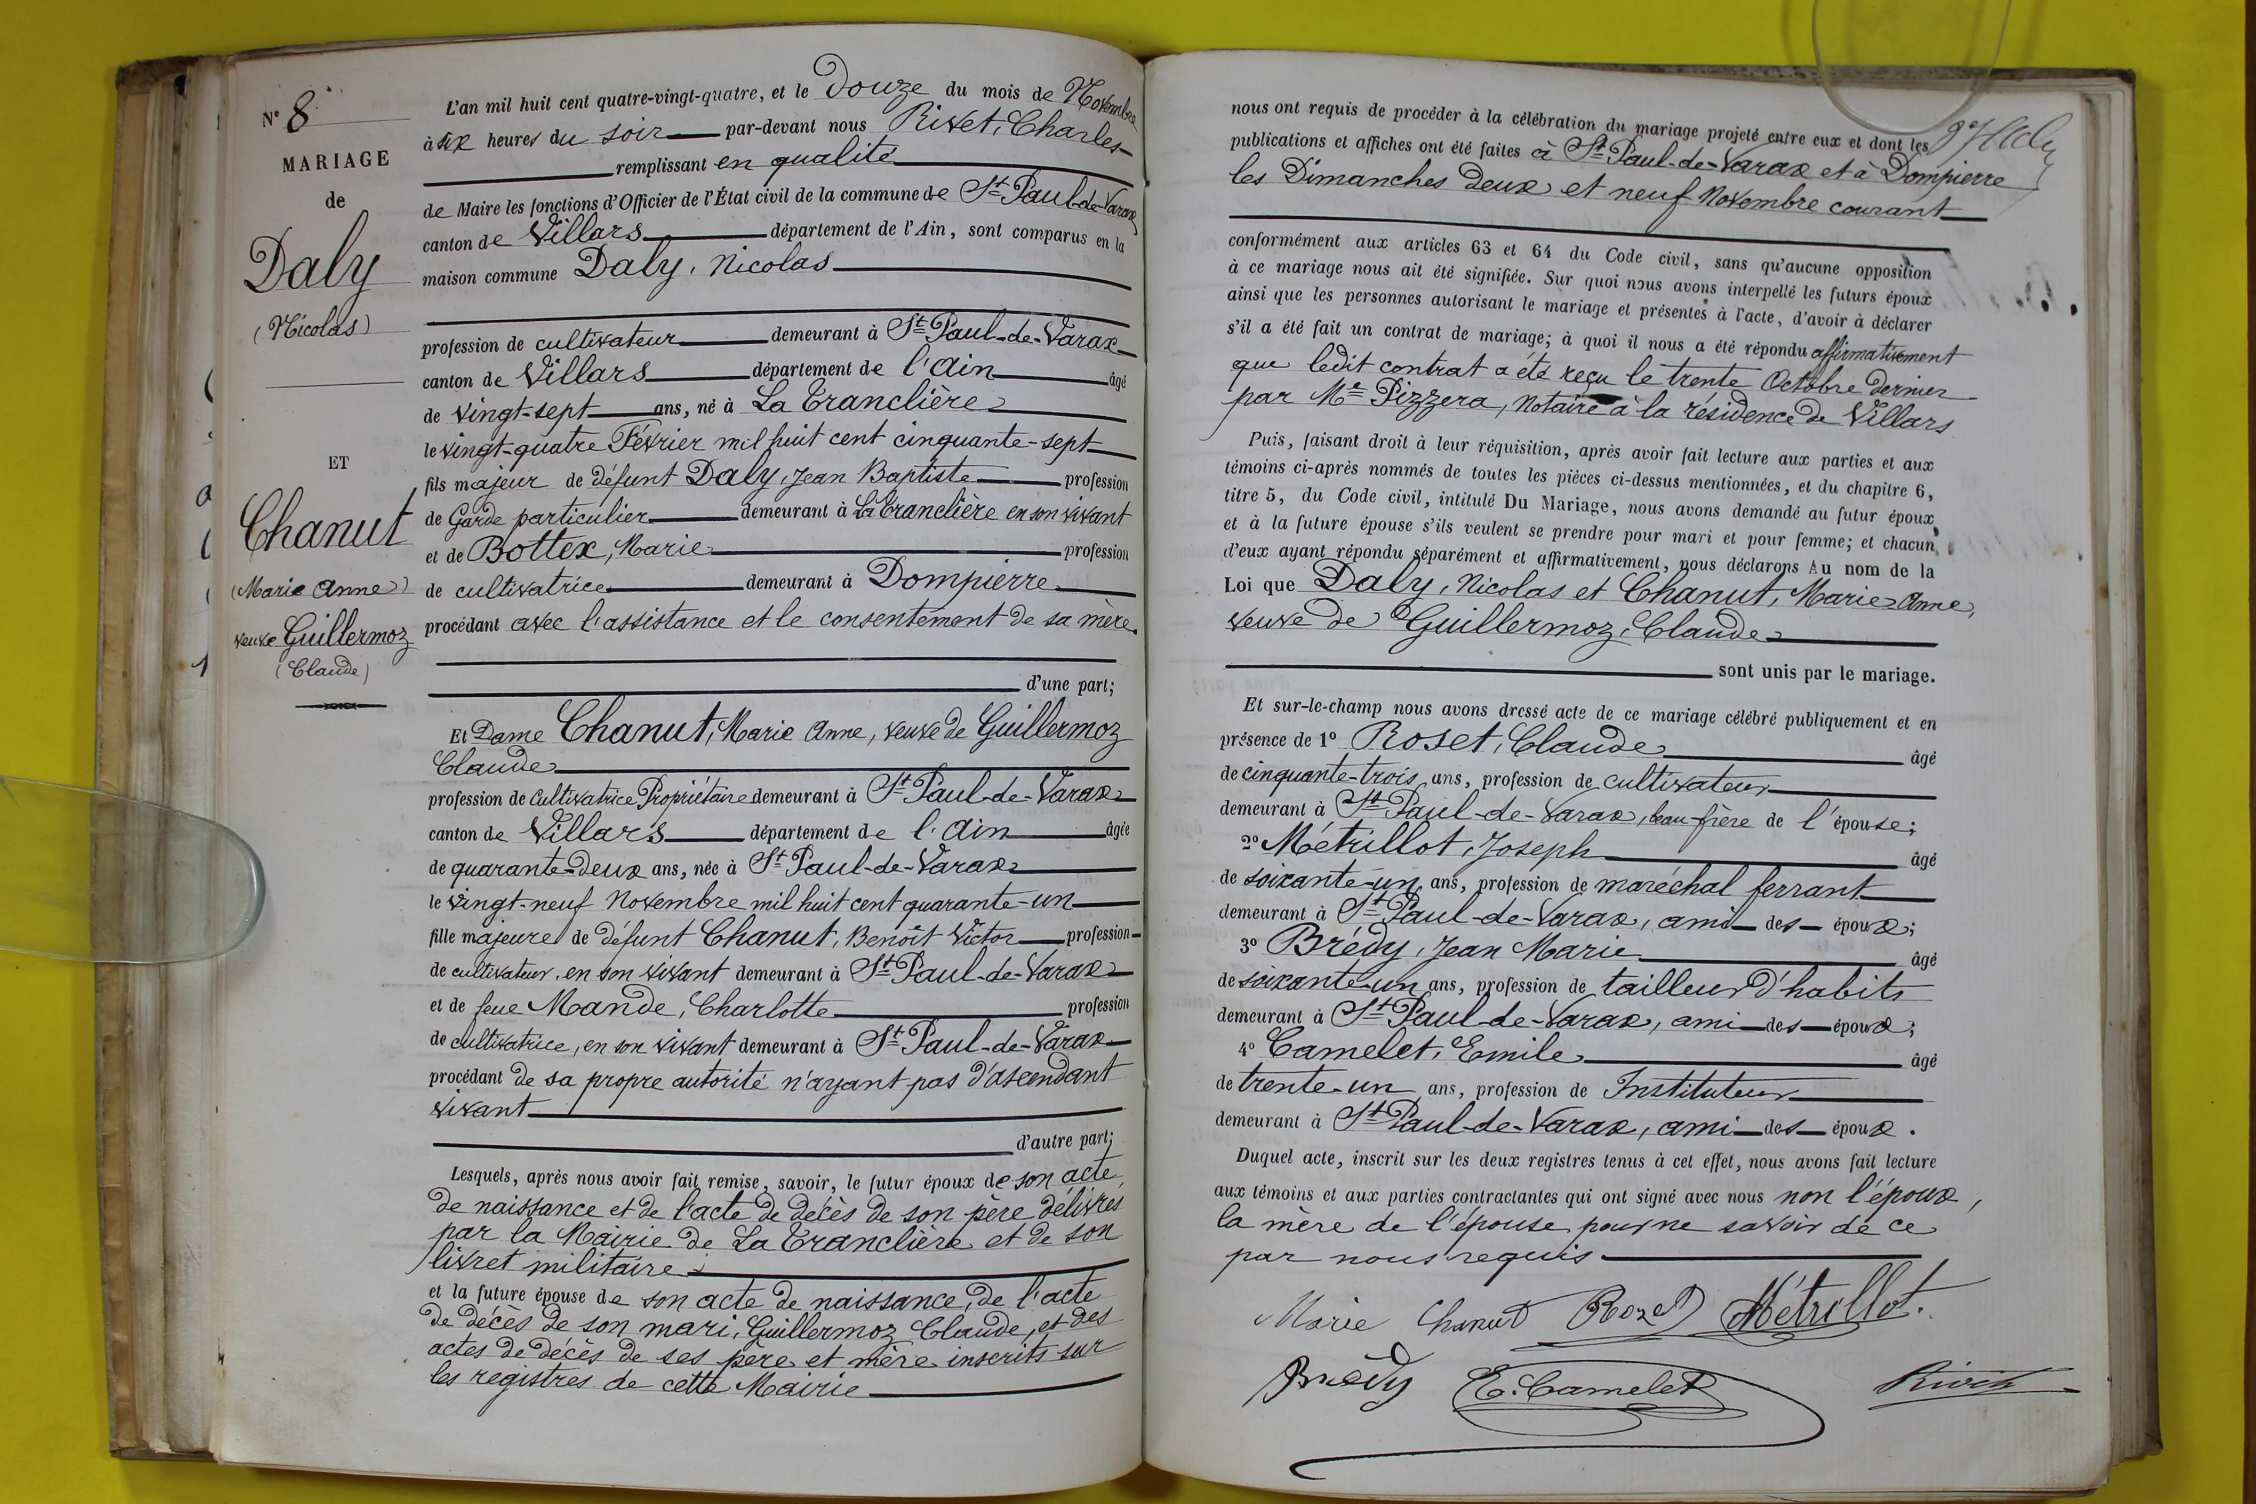 N° 8
MARIAGE
de
Daly
(Nicolas)
ET
Chanut
(Marie Anne)
veuve Guillermoz
(Claude)
L'an mil huit cent quatre-vingt-quatre, et le Douze du mois de Novembre
à six heures du soir par-devant nous Rivet, Charles
remplissant en qualité
de Maire les fonctions d'Officier de l'État civil de la commune de St Paul-de-Varax
canton de Villars département de l'Ain, sont comparus en la
maison commune Daly, Nicolas
profession de cultivateur demeurant à St Paul-de-Varax
canton de Villars département de l'Ain âgé
de vingt-sept ans, né à La Tranclière
le vingt-quatre Février mil huit cent cinquante-sept
fils majeur de défunt Daly, Jean Baptiste profession
de Garde particulier demeurant à La Tranclière en son vivant
et de Bottex, Marie profession
de cultivatrice demeurant à Dompierre
procédant avec l'assistance et le consentement de sa mère
d'une part;
Et Dame Chanut, Marie Anne, veuve de Guillermoz
Claude
profession de Cultivatrice Propriétaire demeurant à St Paul-de-Varax
canton de Villars département de l'Ain âgée
de quarante-deux ans, née à St Paul-de-Varax
le vingt-neuf Novembre mil huit cent quarante-un
fille majeure de défunt Chanut, Benoît Victor profession
de cultivateur, en son vivant demeurant à St Paul-de-Varax
et de feue Mande, Charlotte profession
de cultivatrice, en son vivant demeurant à St Paul-de-Varax
procédant de sa propre autorité n'ayant pas d'ascendant
vivant
d'autre part;
Lesquels, après nous avoir fait remise, savoir, le futur époux de son acte
de naissance et de l'acte de décès de son père délivrés
par la Mairie de La Tranclière et de son
livret militaire
et la future épouse de son acte de naissance, de l'acte
de décès de son mari, Guillermoz Claude, et des
actes de décès de ses père et mère inscrits sur
les registres de cette Mairie
nous ont requis de procéder à la célébration du mariage projeté entre eux et dont les
publications et affiches ont été faites à St Paul-de-Varax et à Dompierre
les Dimanches deux et neuf Novembre courant
conformément aux articles 63 et 64 du Code civil, sans qu'aucune opposition
à ce mariage nous ait été signifiée. Sur quoi nous avons interpellé les futurs époux
ainsi que les personnes autorisant le mariage et présentes à l'acte, d'avoir à déclarer
s'il a été fait un contrat de mariage; à quoi il nous a été répondu affirmativement
que ledit contrat a été reçu le trente Octobre dernier
par Me Pizzera, Notaire à la résidence de Villars
Puis, faisant droit à leur réquisition, après avoir fait lecture aux parties et aux
témoins ci-après nommés de toutes les pièces ci-dessus mentionnées, et du chapitre 6,
titre 5, du Code civil, intitulé Du Mariage, nous avons demandé au futur époux
et à la future épouse s'ils veulent se prendre pour mari et pour femme; et chacun
d'eux ayant répondu séparément et affirmativement, nous déclarons Au nom de la
Loi que Daly, Nicolas et Chanut, Marie Anne,
veuve de Guillermoz, Claude
sont unis par le mariage.
Et sur-le-champ nous avons dressé acte de ce mariage célébré publiquement et en
présence de 1° Roset, Claude âgé
de cinquante-trois ans, profession de cultivateur
demeurant à St Paul-de-Varax, beau-frère de l'épouse;
2° Métrillot, Joseph âgé
de soixante-un ans, profession de maréchal ferrant
demeurant à St Paul-de-Varax, ami des époux;
3° Brédy, Jean Marie âgé
de soixante-un ans, profession de tailleur d'habits
demeurant à St Paul-de-Varax, ami des époux;
4° Camelet, Emile âgé
de trente-un ans, profession de Instituteur
demeurant à St Paul-de-Varax, ami des époux.
Duquel acte, inscrit sur les deux registres tenus à cet effet, nous avons fait lecture
aux témoins et aux parties contractantes qui ont signé avec nous non l'époux,
la mère de l'épouse pour ne savoir de ce
par nous requis
Marie Chanut Rozet Métrillot.
Brédy E. Camelet Rivet